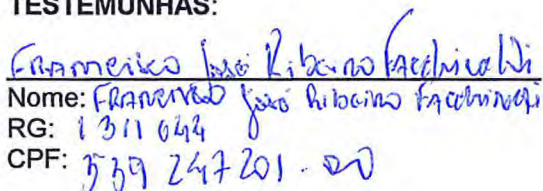 TESTEMUNHAS:
Francisco José Ribeiro Facchinetti
Nome: Francisco José Ribeiro Facchinetti
RG: 1311644
CPF: 539 247 201 - 20